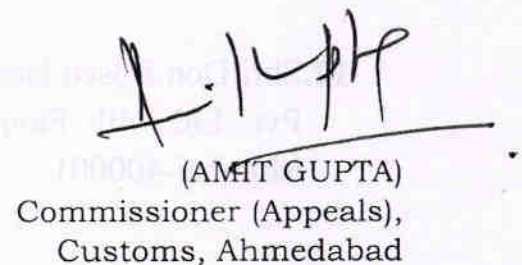 A. Gupta
(AMIT GUPTA)
Commissioner (Appeals),
Customs, Ahmedabad